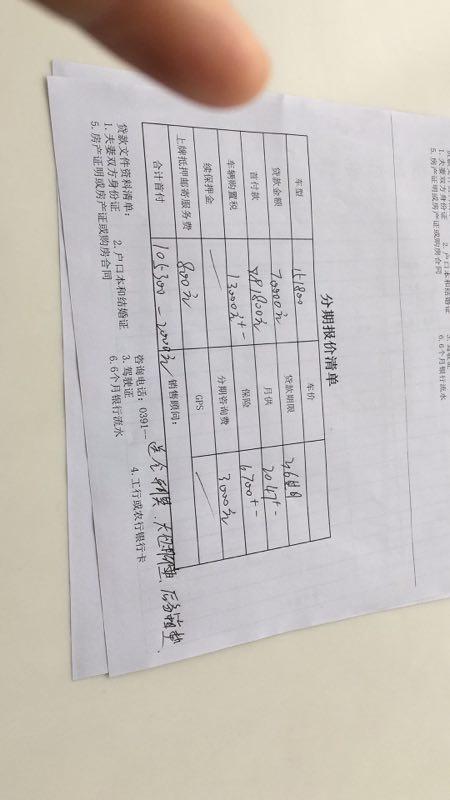 分期报价清单
车型 15800 车价
贷款金额 70000元 贷款期限 36期
首付款 81800元 月供 2047+-
车辆购置税 13000元+- 保险 6700+-
续保押金 分期咨询费 3000元
上牌抵押邮寄服务费 800元 GPS
合计首付 105300-2000元 销售顾问：
送全车膜、大包脚垫、后备箱垫、
贷款文件资料清单： 咨询电话：0391—
1. 夫妻双方身份证 2. 户口本和结婚证 3. 驾驶证 4. 工行或农行银行卡
5. 房产证明或房产证或购房合同 6. 6个月银行流水
1. 夫妻双方身份证 2. 户口本和结婚证
5. 房产证明或房产证或购房合同 6. 6个月银行流水